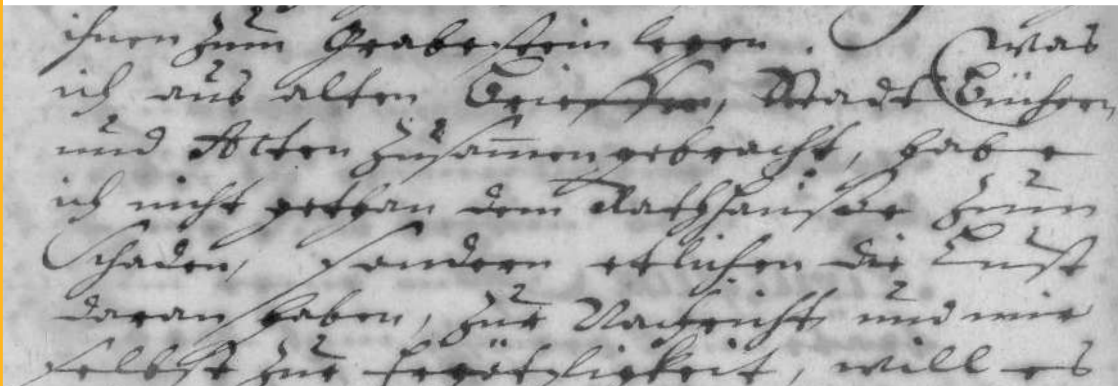 ihnen zum Grabestein legen. Was
ich aus alten Brieffen, Stadt Büchern
und Acten zusam̄en gebracht, habe
ich nicht gethan dem Rathhause zum
Schaden, sondern etlichen die Lust
daran haben, zur Nachricht und mir
selbst zur Ergötzligkeit, will es